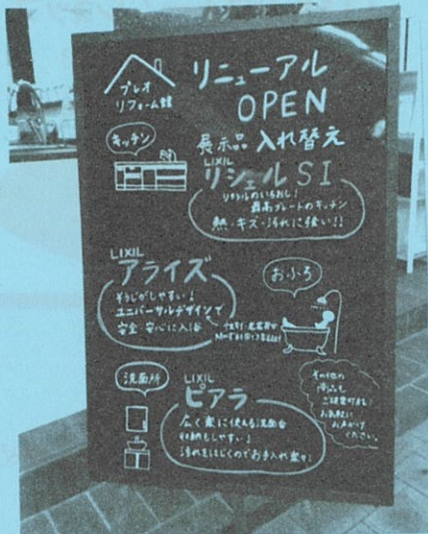 プレオ
リフォーム館
リニューアル
OPEN
展示品 入れ替え
キッチン
LIXIL
リシェル SI
最高グレードのキッチン
熱・キズ・汚れに強い!!
LIXIL
アライズ
そうじがしやすい!
ユニバーサルデザインで
安全 安心に入浴
おふろ
洗面所
LIXIL
ピアラ
広く楽に使える洗面台
収納もしやすい!
汚れをはじくのでお手入れ楽々!
その他の
商品も
ご提案可能!
お気軽に
お声がけ
ください。